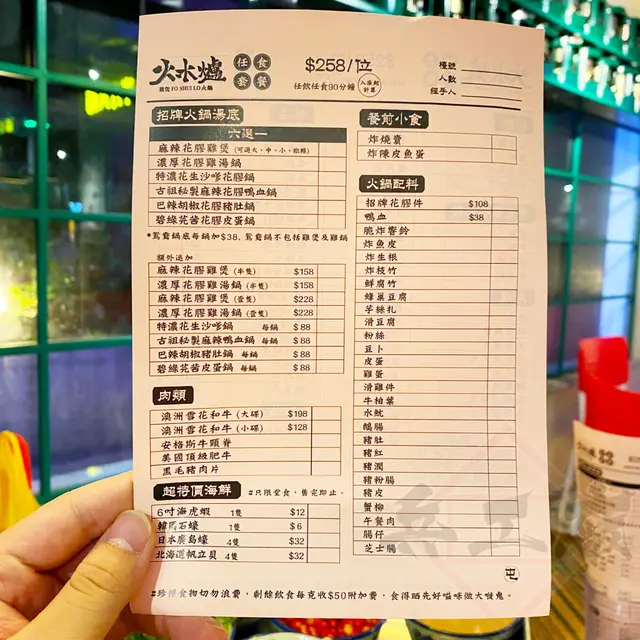 火水爐
雞煲 FO SHUI LO 火鍋
任食
套餐
$258/位
任飲任食90分鐘
入座起
計算
檯號
人數
經手人
招牌火鍋湯底
六選一
麻辣花膠雞煲(可選大、中、小、微辣)
濃厚花膠雞湯鍋
特濃花生沙嗲花膠鍋
古祖秘製麻辣花膠鴨血鍋
巴辣胡椒花膠豬肚鍋
碧綠芫茜花膠皮蛋鍋
*鴛鴦鍋底每鍋加$38, 鴛鴦鍋不包括雞煲及雞鍋
額外追加
麻辣花膠雞煲(半隻) $158
濃厚花膠雞湯鍋(半隻) $158
麻辣花膠雞煲(壹隻) $228
濃厚花膠雞湯鍋(壹隻) $228
特濃花生沙嗲鍋 每鍋 $88
古祖秘製麻辣鴨血鍋 每鍋 $88
巴辣胡椒豬肚鍋 每鍋 $88
碧綠芫茜皮蛋鍋 每鍋 $88
肉類
澳洲雪花和牛(大碟) $198
澳洲雪花和牛(小碟) $128
安格斯牛頸脊
美國頂級肥牛
黑毛豬肉片
超特價海鮮
#只限堂食,售完即止。
6吋海虎蝦 1隻 $12
韓國石蠔 1隻 $6
日本廣島蠔 4隻 $32
北海道帆立貝 4隻 $32
餐前小食
炸燒賣
炸陳皮魚蛋
火鍋配料
招牌花膠件 $108
鴨血 $38
脆炸響鈴
炸魚皮
炸生根
炸枝竹
鮮腐竹
蜂巢豆腐
芋絲扎
滑豆腐
粉絲
豆卜
皮蛋
雞蛋
滑雞件
牛柏葉
水魷
鵝腸
豬肚
豬紅
豬潤
豬粉腸
豬皮
蟹柳
午餐肉
腸仔
芝士腸
屯
#珍惜食物切勿浪費,剩餘飲食每克收$50附加費,食得晒先好嗌咪做大嘥鬼。